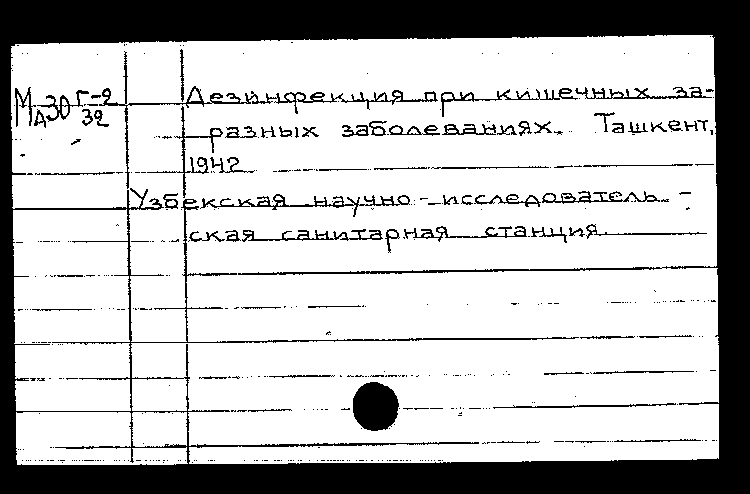 Мд30 Г-2/32
Дезинфекция при кишечных за-
разных заболеваниях. Ташкент,
1942
Узбекская научно-исследователь-
ская санитарная станция.